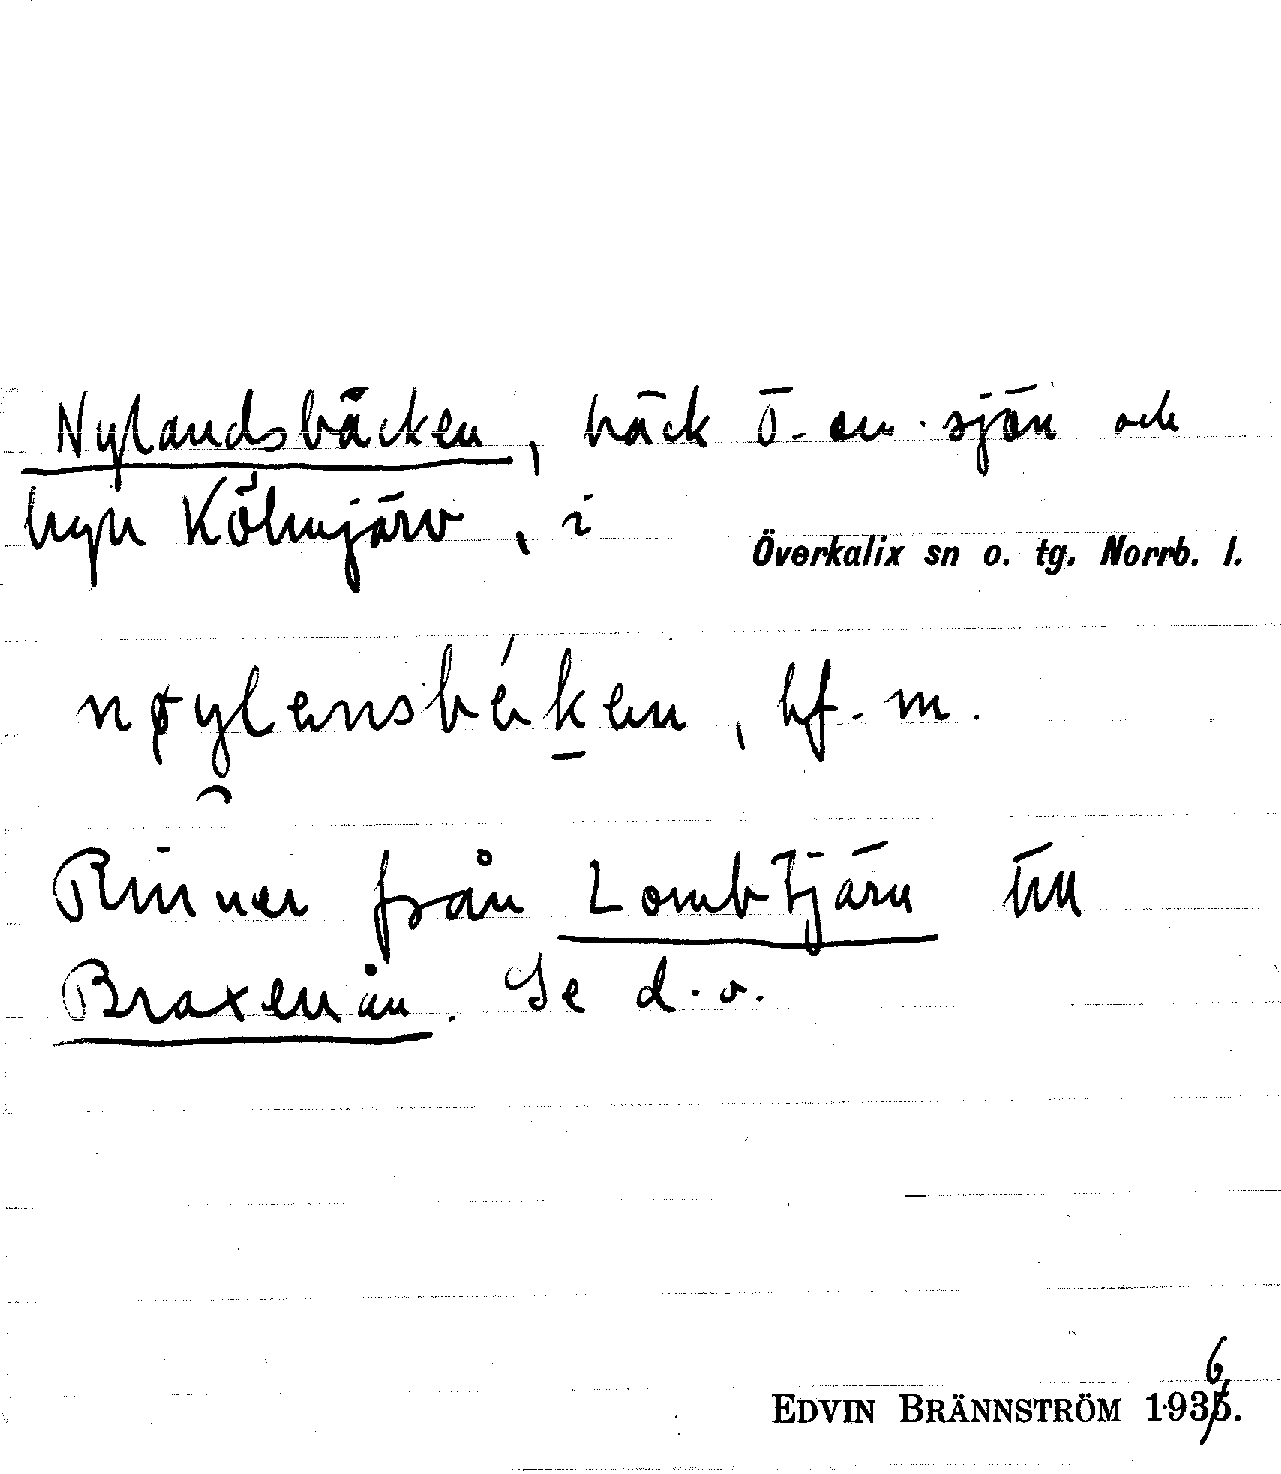 Nylandsbäcken, bäck Ö. om sjön och
byn Kölmjärv, i
Överkalix sn o. tg. Norrb. l.
nøylensbéken, bf. m.
Rinner från Lombtjärn till
Braxenån. Se d. o.
EDVIN BRÄNNSTRÖM 1936.